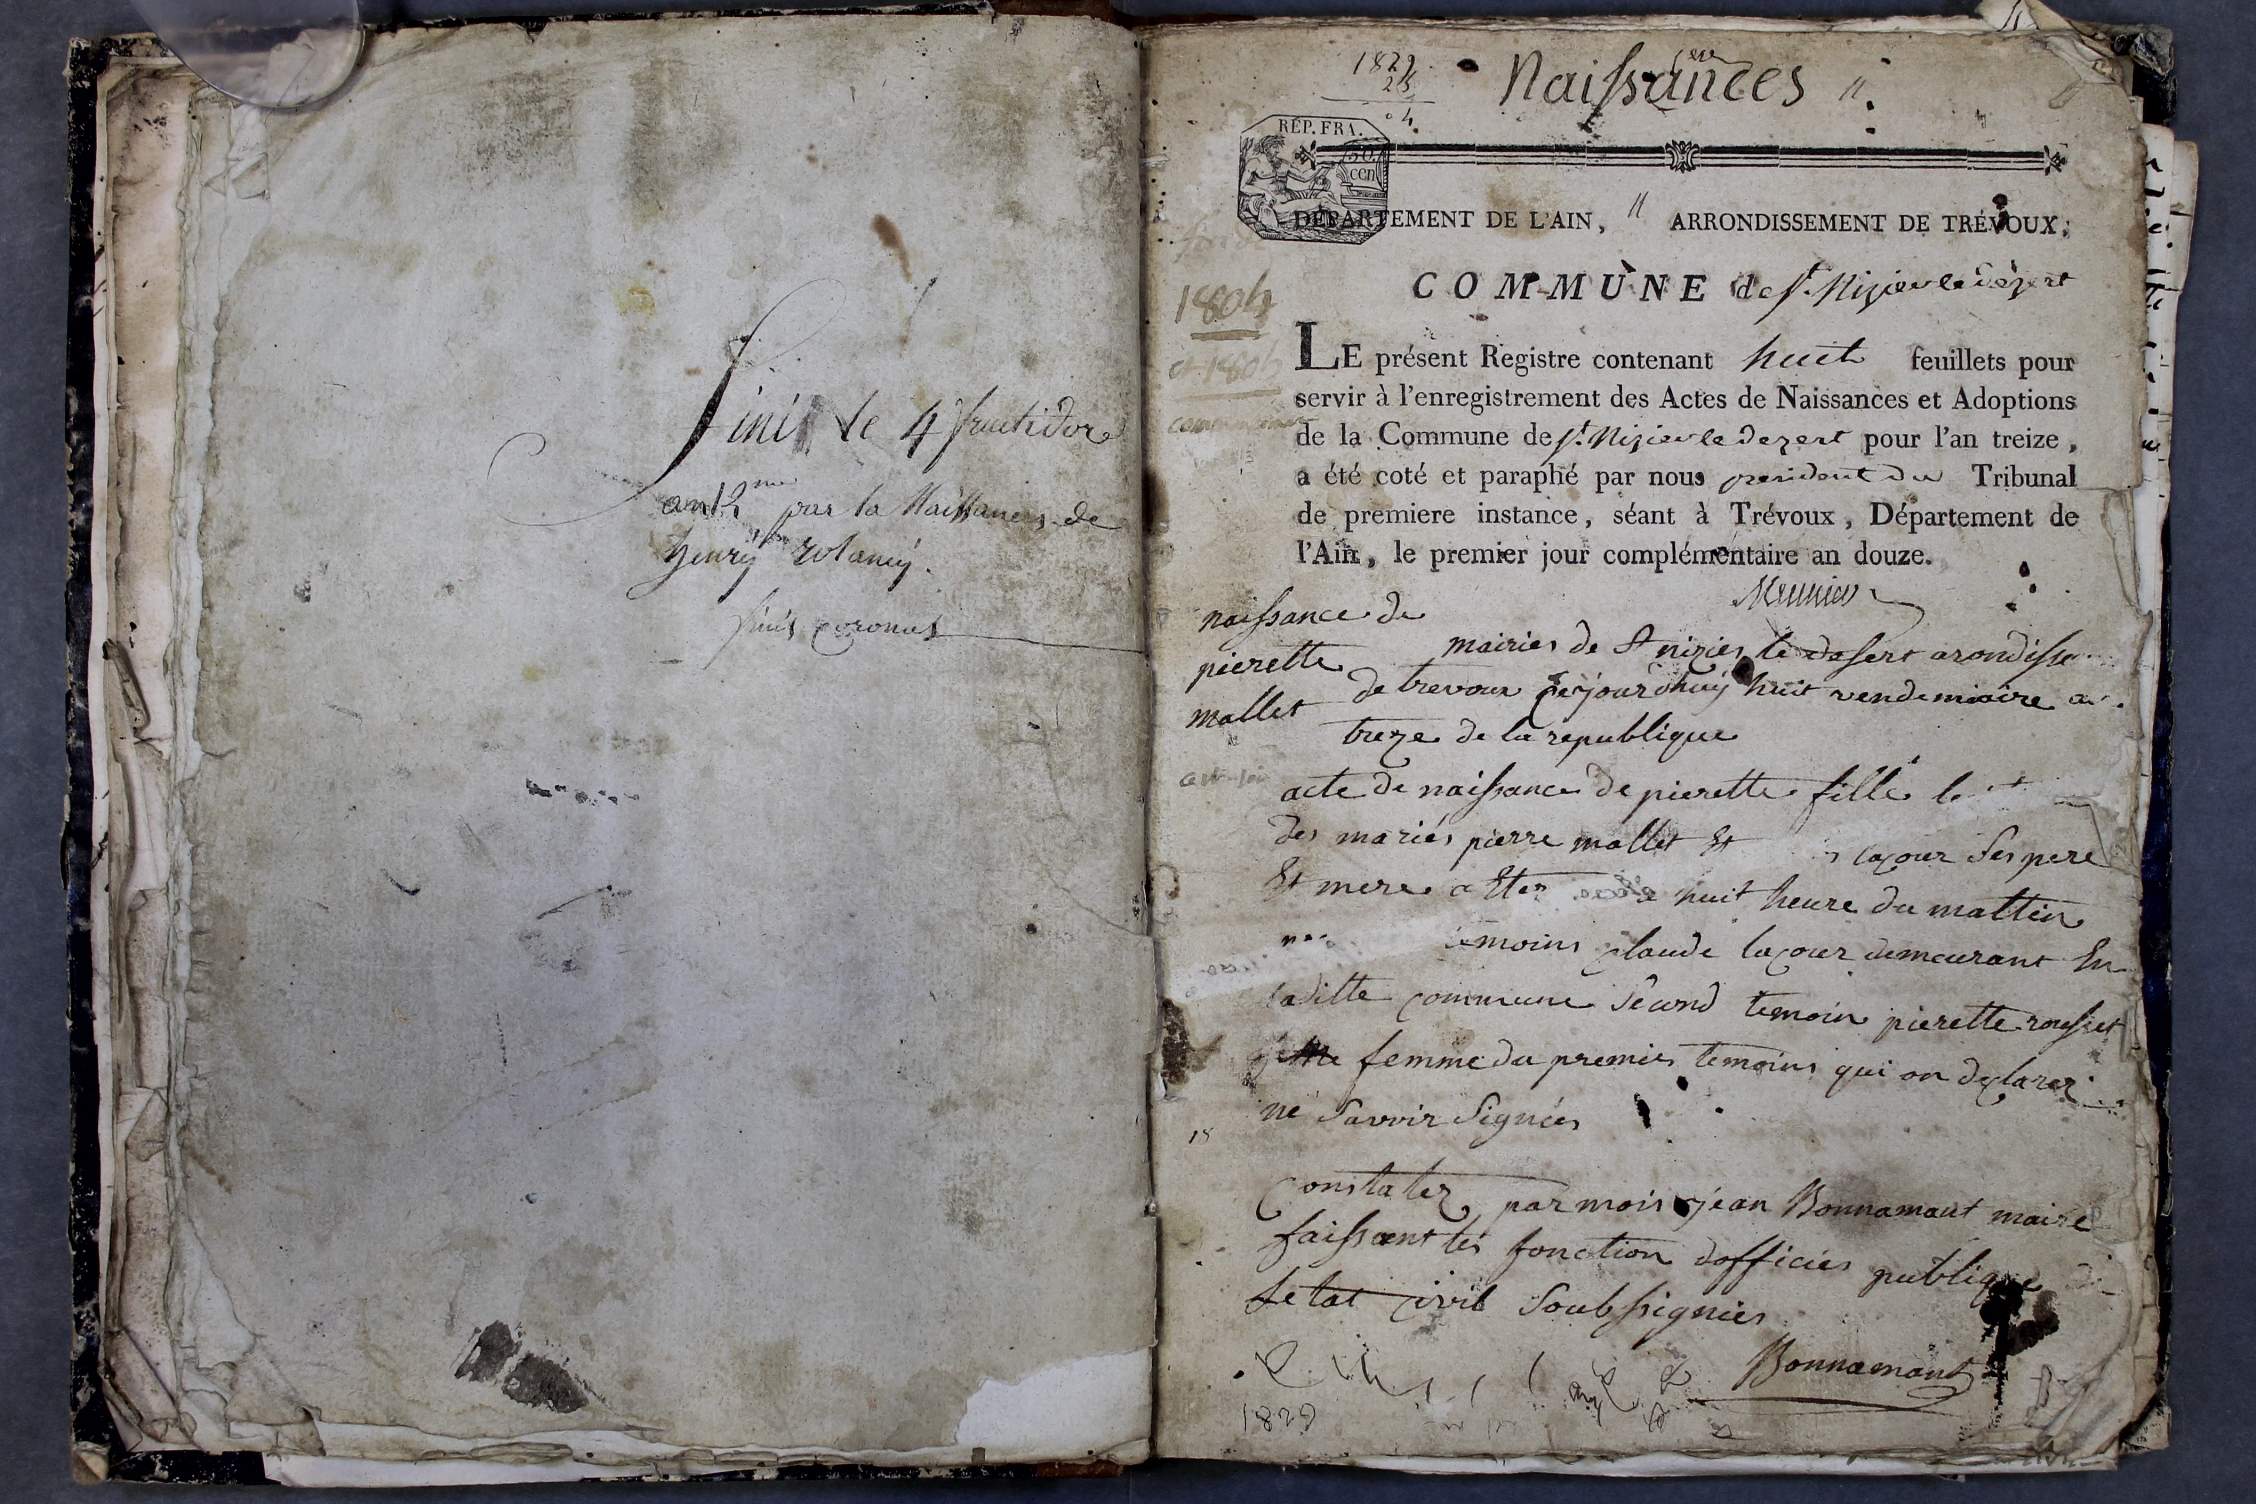 finis le 4 fructidor
an 12 me par la Naissances de
henry
finis coronat
1829
25
04
Naissances
RÉP. FRA.
50
cen
DÉPARTEMENT DE L'AIN, ARRONDISSEMENT DE TRÉVOUX,
COMMUNE de St. Nizier le Dezert
1804
et 1805
LE présent Registre contenant huit feuillets pour
servir à l'enregistrement des Actes de Naissances et Adoptions
de la Commune de St. Nizier le Dezert pour l'an treize,
a été coté et paraphé par nous president du Tribunal
de premiere instance, séant à Trévoux, Département de
l'Ain, le premier jour complémentaire an douze.
Meunier
naissance de
pierette
mallet
mairies de St nizier le desert arondisse
de trevoux cejourdhuy huit vendemiaire an
treze de la republique
acte de naissance de pierette fille le
des mariés pierre mallet Et lacour Ses pere
Et mere a Eter huit heure du mattin
temoins claude lacour demeurant En
laditte commune Second temoin pierette rousset
femme du premier temoins qui on declarez
ne Savoir Signiés
18
Constatez par mois jean Bonnamant maire
faissent les fonction dofficier publique
Letat civil Soubssignier
Bonnamant
1829